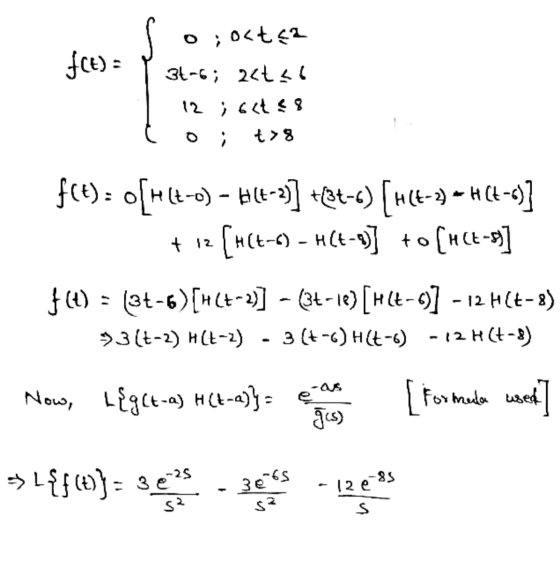 f(t) = { 0 ; 0<t≤2
3t-6 ; 2<t≤6
12 ; 6<t≤8
0 ; t>8
f(t) = 0[H(t-0) - H(t-2)] + (3t-6) [H(t-2) - H(t-6)]
+ 12 [H(t-6) - H(t-8)] + 0 [H(t-8)]
f(t) = (3t-6)[H(t-2)] - (3t-18)[H(t-6)] - 12 H(t-8)
⇒ 3(t-2) H(t-2) - 3(t-6) H(t-6) - 12 H(t-8)
Now, L{g(t-a) H(t-a)} = e^-as / g̅(s) [Formula used]
⇒ L{f(t)} = 3e^-2s / s² - 3e^-6s / s² - 12e^-8s / s